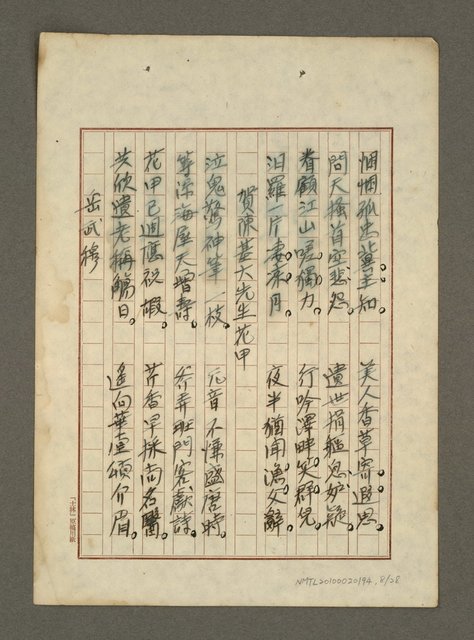 悃悃孤忠冀主知。 美人香草寄遐思。
問天搔首空悲怨。 遺世捐軀息妒疑。
眷顧江山嗟獨力。 行吟澤畔笑群兒。
汨羅一片凄涼月。 夜半猶聞漁父辭。
賀陳甚大先生花甲
泣鬼驚神筆一枝。 元音不慊盛唐時。
籌添海屋天增壽。 斧弄班門客獻詩。
花甲已週應祝嘏。 芹香早採尚名醫。
共欣遺老稱觴日。 遙向華堂頌介眉。
岳武穆
原稿用紙
NMTL20100020194, 8/28